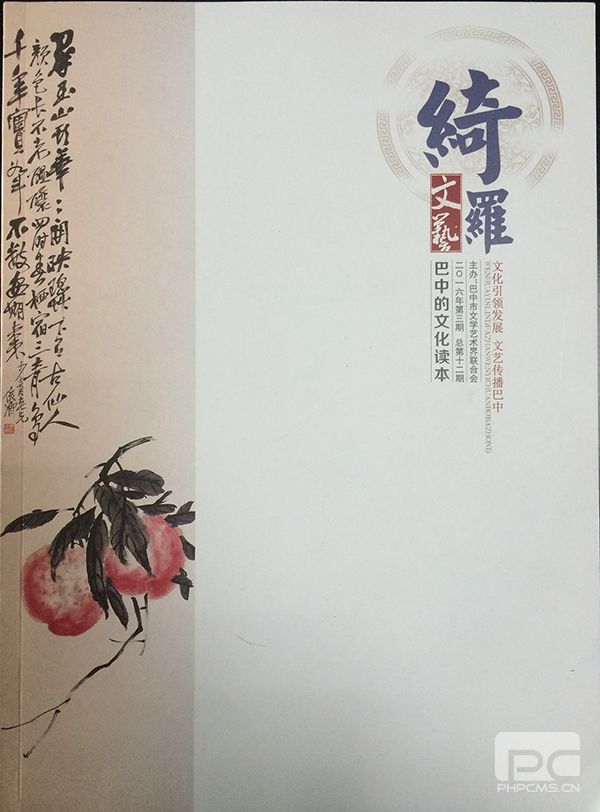 綺羅
文藝
文化引领发展 文艺传播巴中
WENHUAYINLINGFAZHANWENYICHUANBOBAZHONG
主办:巴中市文学艺术界联合会
二〇一六年第三期 总第十二期
巴中的文化读本
玉山
顏色長不老 四時春栖宿三青鳥
千年寶 不數安期棗
PC
PHPCMS.CN